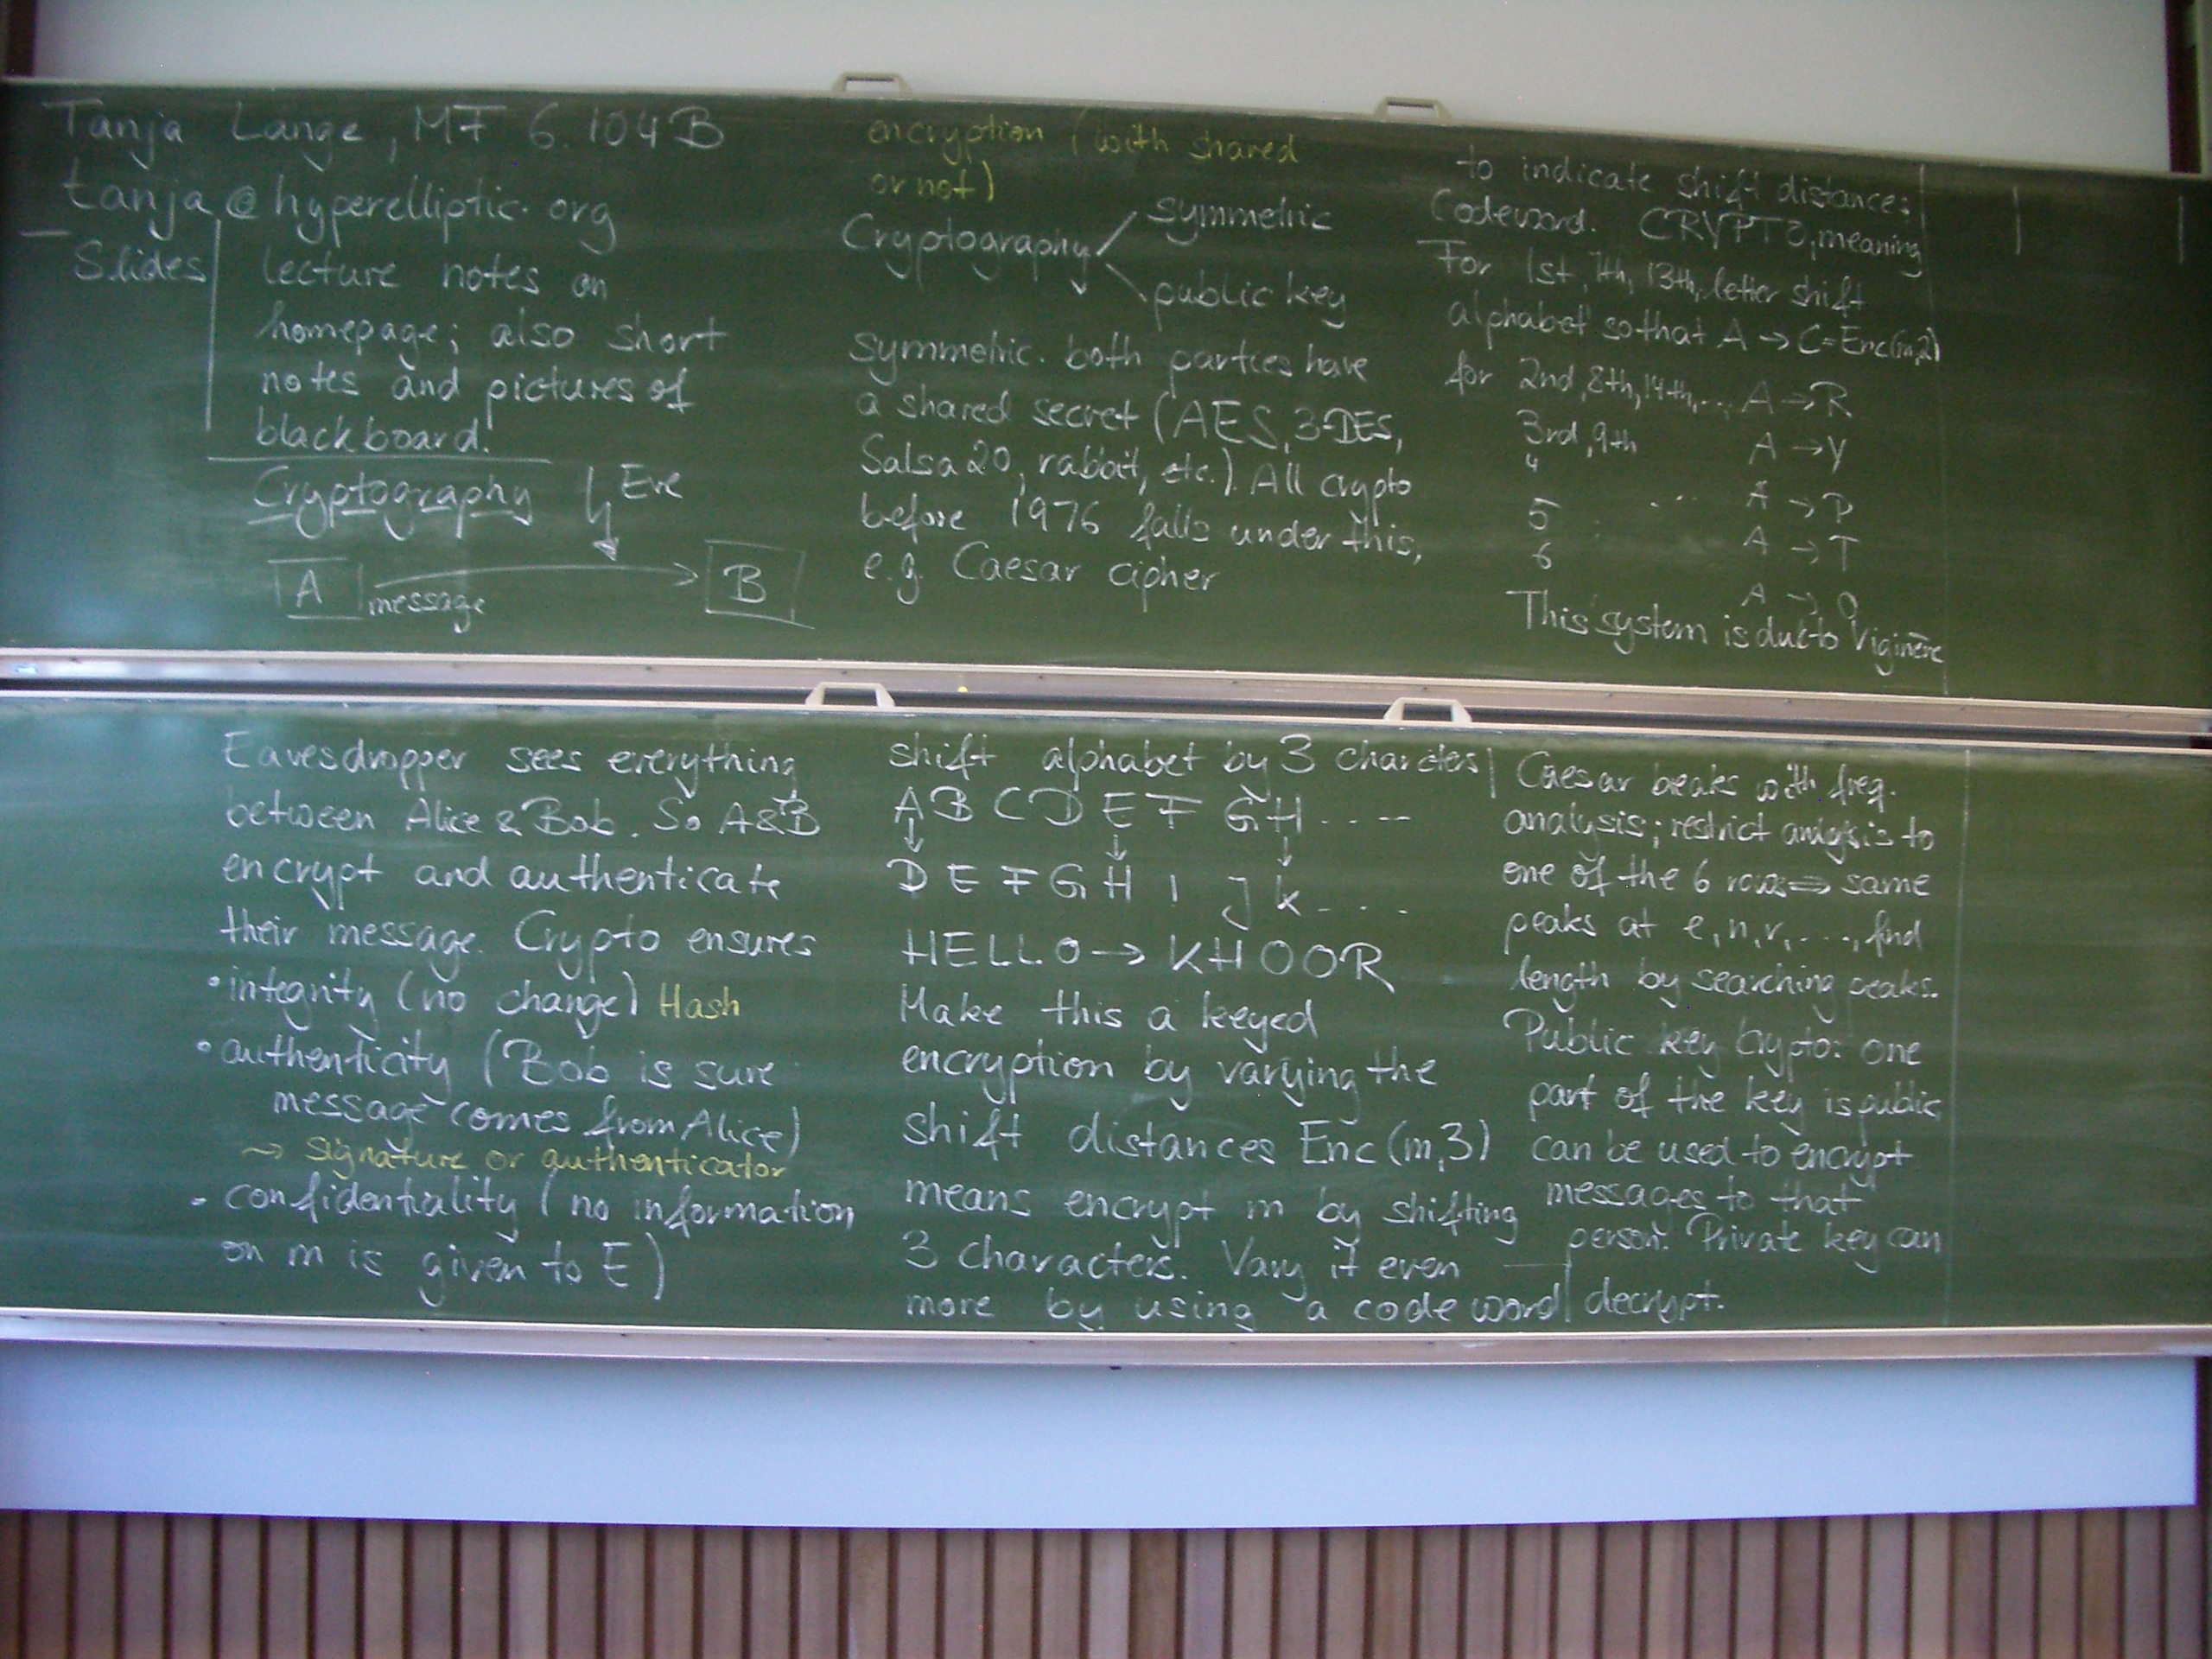 Tanja Lange, MF 6.104B
tanja@hyperelliptic.org
Slides
lecture notes on
homepage; also short
notes and pictures of
blackboard.
Cryptography
Eve
A
message
B
Eavesdropper sees everything
between Alice & Bob. So A&B
encrypt and authenticate
their message. Crypto ensures
• integrity (no change) Hash
• authenticity (Bob is sure
message comes from Alice)
~> signature or authenticator
• confidentiality (no information
on m is given to E)
encryption (with shared
or not)
Cryptography
symmetric
public key
symmetric. both parties have
a shared secret (AES, 3-DES,
Salsa20, rabbit, etc.). All crypto
before 1976 falls under this,
e.g. Caesar cipher
shift alphabet by 3 charcters
A B C D E F G H ....
D E F G H I J K ...
HELLO → KHOOR
Make this a keyed
encryption by varying the
shift distances Enc(m,3)
means encrypt m by shifting
3 characters. Vary it even
more by using a code word
to indicate shift distance:
Codeword. CRYPTO, meaning
For 1st, 7th, 13th, letter shift
alphabet so that A → C = Enc(m,2)
for 2nd, 8th, 14th, ... A → R
3rd, 9th A → Y
4 ... A → P
5 A → T
6 A → O
This system is due to Viginère
Caesar beaks with freq.
analysis; restrict analysis to
one of the 6 rows ⇒ same
peaks at e, n, r, ..., find
length by searching peaks.
Public key Crypto: one
part of the key is public
can be used to encrypt
messages to that
person. Private key can
decrypt.